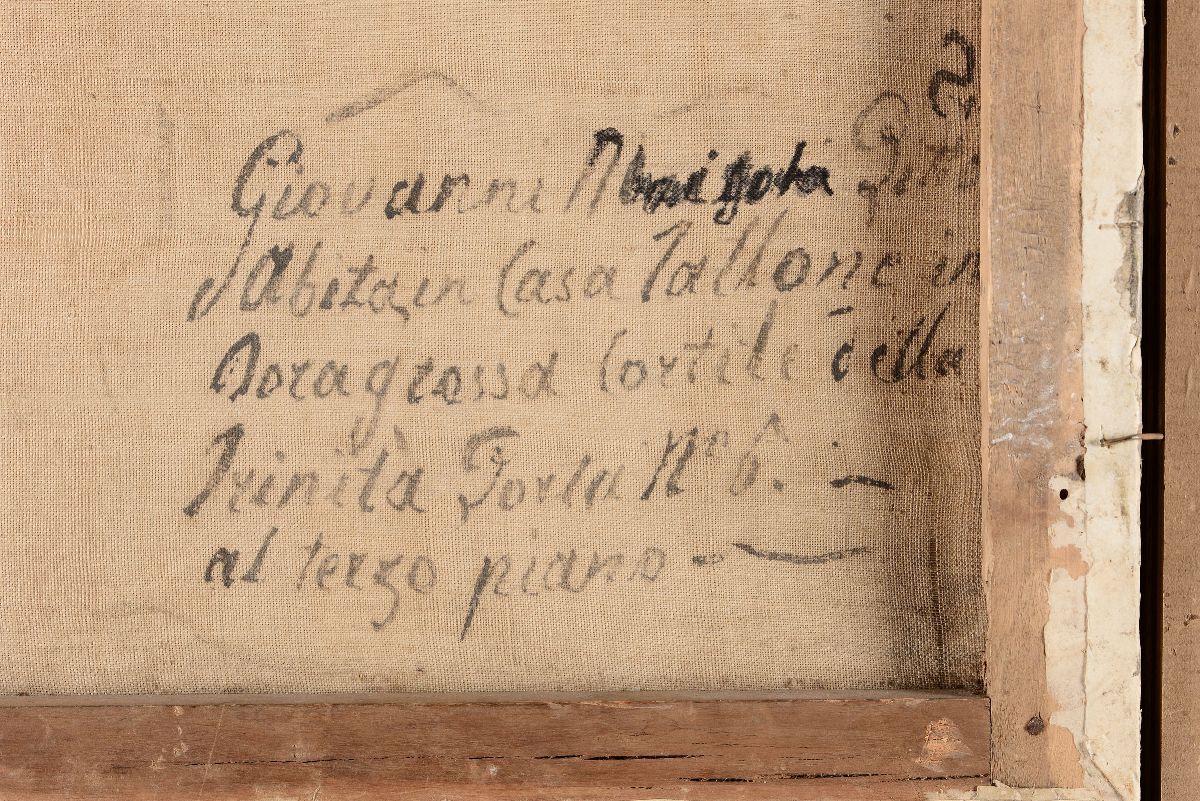 Giovanni Pitto
Abita in Casa Tallone in
Doragrossa Cortile della
Trinità Porta Nº 6. -
al terzo piano -